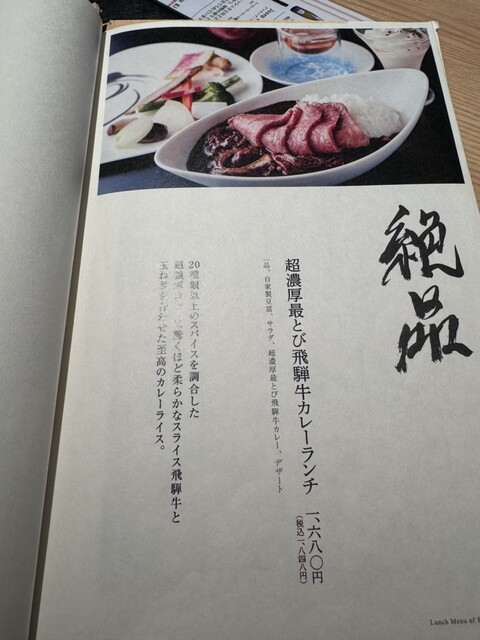 絶品
超濃厚最とび飛騨牛カレーランチ 一、六八〇円
(税込一、八四八円)
一品、自家製豆冨、サラダ、超濃厚最とび飛騨牛カレー、デザート
20種類以上のスパイスを調合した
驚くほど柔らかなスライス飛騨牛と
玉ねぎを合わせた至高のカレーライス。
Lunch Menu of